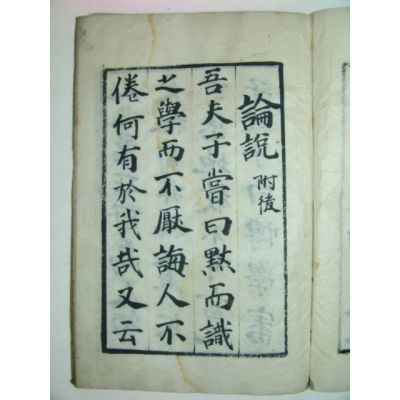 論說 附後
吾夫子嘗曰默而識
之學而不厭誨人不
倦何有於我哉又云